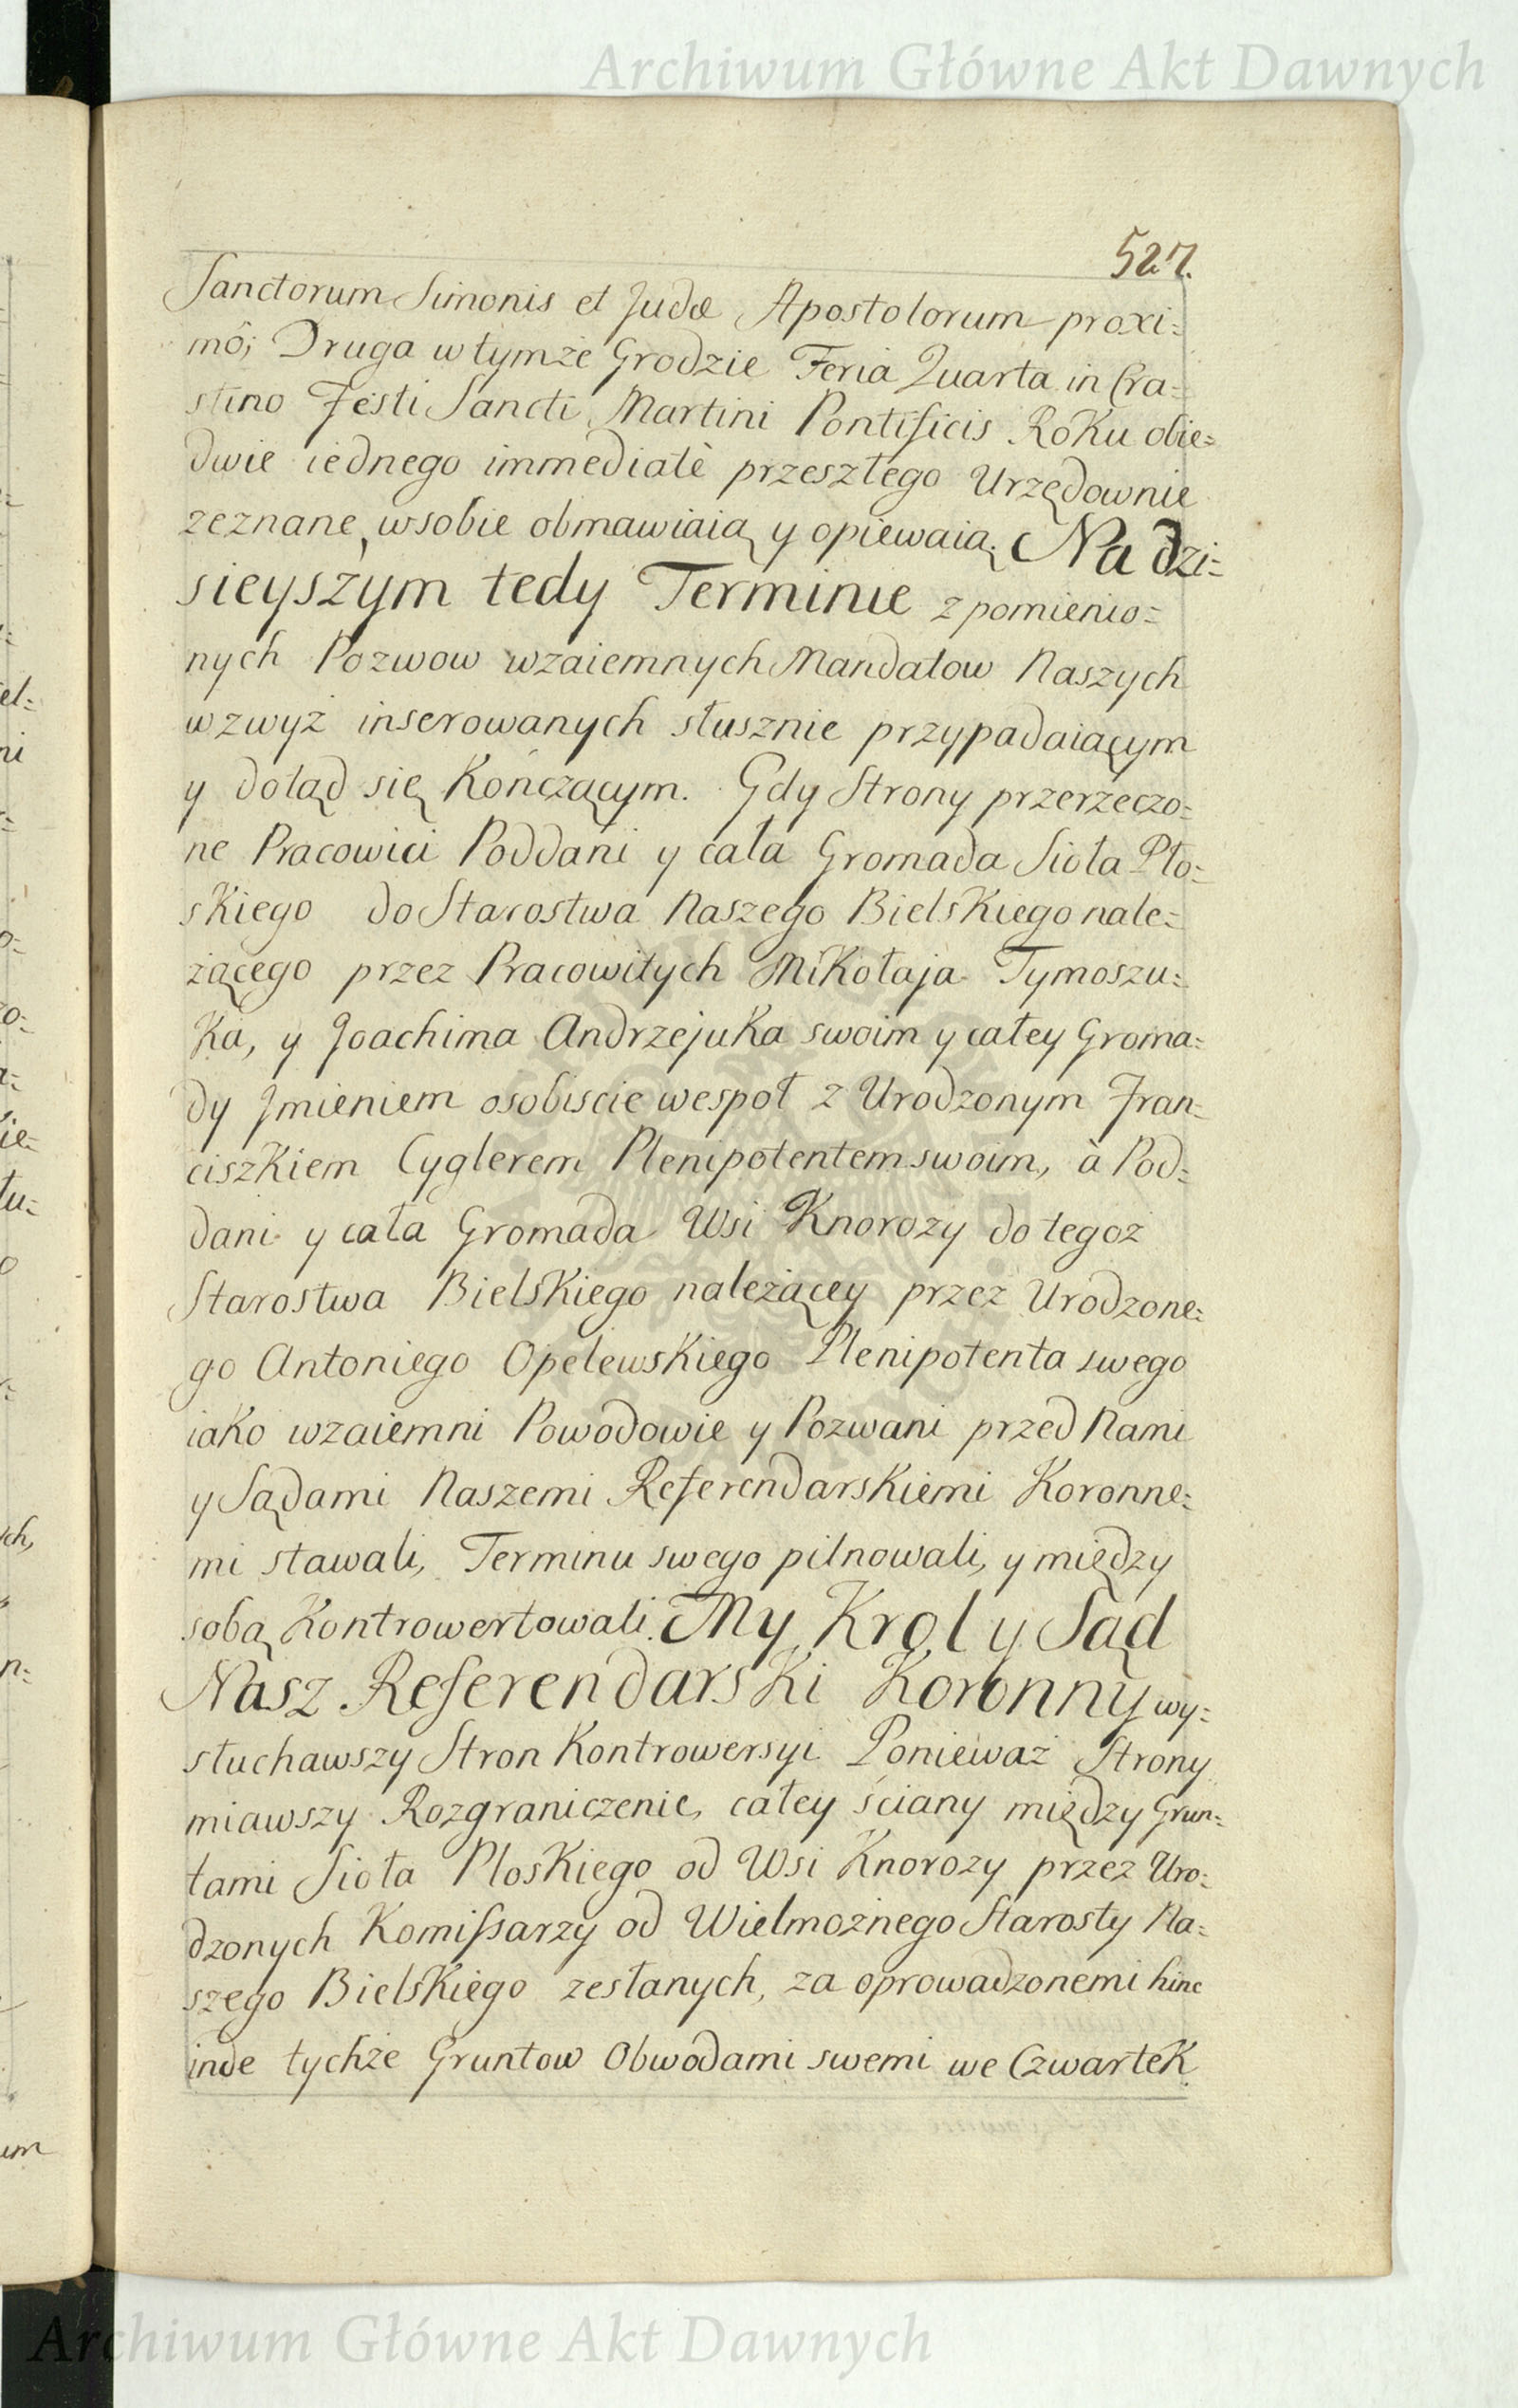 Archiwum Główne Akt Dawnych
527.
Sanctorum Simonis et Judæ Apostolorum proxi=
mô; Druga w tymże Grodzie Feria Quarta in Cra=
stino Festi Sancti Martini Pontificis Roku obie=
dwie iednego immediatè przeszłego Urzędownie
zeznane, wsobie obmawiaią y opiewaią. Na dzi=
sieyszym tedy Terminie z pomienio=
nych Pozwow wzaiemnych Mandatow Naszych
wzwyż inserowanych słusznie przypadaiącym
y dotąd się Kończącym. Gdy Strony przerzeczo=
ne Pracowici Poddani y cała Gromada Sioła Pło=
skiego do Starostwa Naszego Bielskiego nale=
żącego przez Pracowitych Mikołaja Tymoszu=
ka, y Joachima Andrzejuka swoim y całey Groma=
dy Jmieniem osobiscie wespoł z Urodzonym Fran=
ciszkiem Cyglerem Plenipotentem swoim, à Pod=
dani y cała Gromada Wsi Knorozy do tegoż
Starostwa Bielskiego należącey przez Urodzone=
go Antoniego Opelewskiego Plenipotenta swego
iako wzaiemni Powodowie y Pozwani przed Nami
y Sądami Naszemi Referendarskiemi Koronne=
mi stawali, Terminu swego pilnowali, y między
sobą Kontrowertowali. My Krol y Sąd
Nasz Referendarski Koronny wy=
słuchawszy Stron Kontrowersyi Ponieważ Strony
miawszy Rozgraniczenie, całey ściany między Grun=
tami Sioła Ploskiego od Wsi Knorozy przez Uro=
dzonych Komissarzy od Wielmożnego Starosty Na=
szego Bielskiego zesłanych, za oprowadzonemi hinc
inde tychże Gruntow Obwodami swemi we Czwartek
Archiwum Główne Akt Dawnych